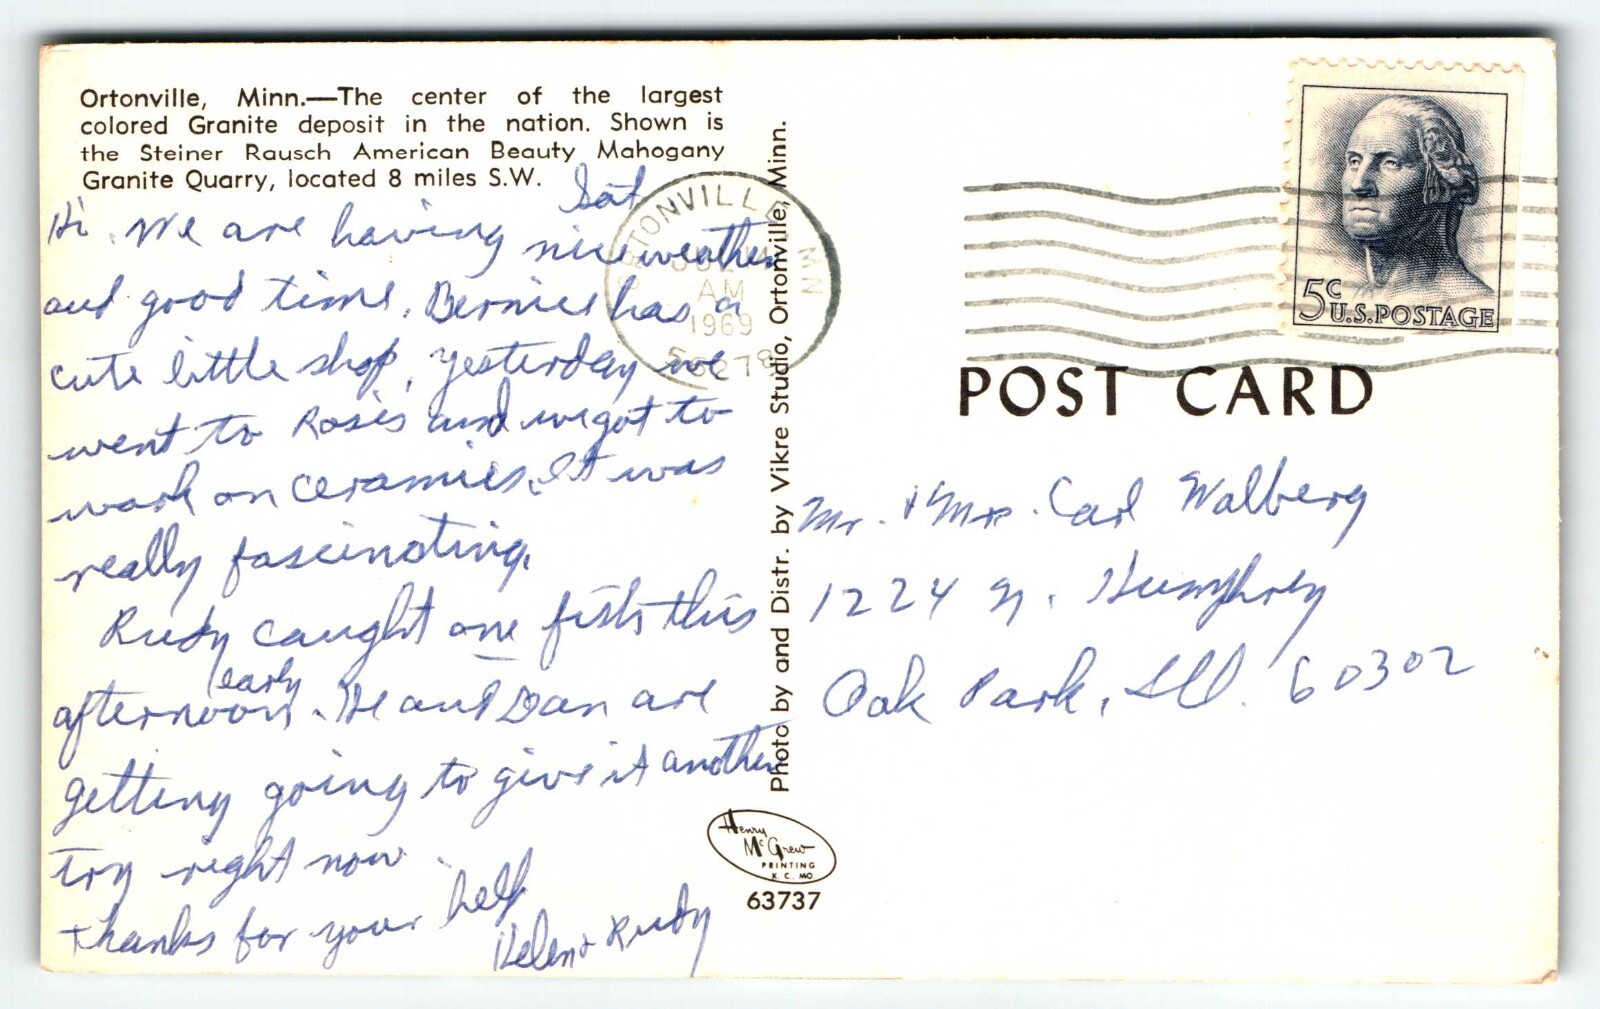 Ortonville, Minn.—The center of the largest
colored Granite deposit in the nation. Shown is
the Steiner Rausch American Beauty Mahogany
Granite Quarry, located 8 miles S.W.
Sat
Hi. We are having nice weather
and good time. Bernice has a
cute little shop. Yesterday we
went to Rosie's and we got to
work on ceramics. It was
really fascinating.
Rudy caught one fish this
early
afternoon. He and Dan are
getting going to give it another
try right now.
Thanks for your help
Helen & Rudy
ORTONVILLE, MN
AM
1969
56278
Photo by and Distr. by Vikre Studio, Ortonville, Minn.
Henry
McGrew
PRINTING
K. C. MO
63737
5c
U.S. POSTAGE
POST CARD
Mr. & Mrs. Carl Walberg
1224 N. Humphrey
Oak Park, Ill. 60302